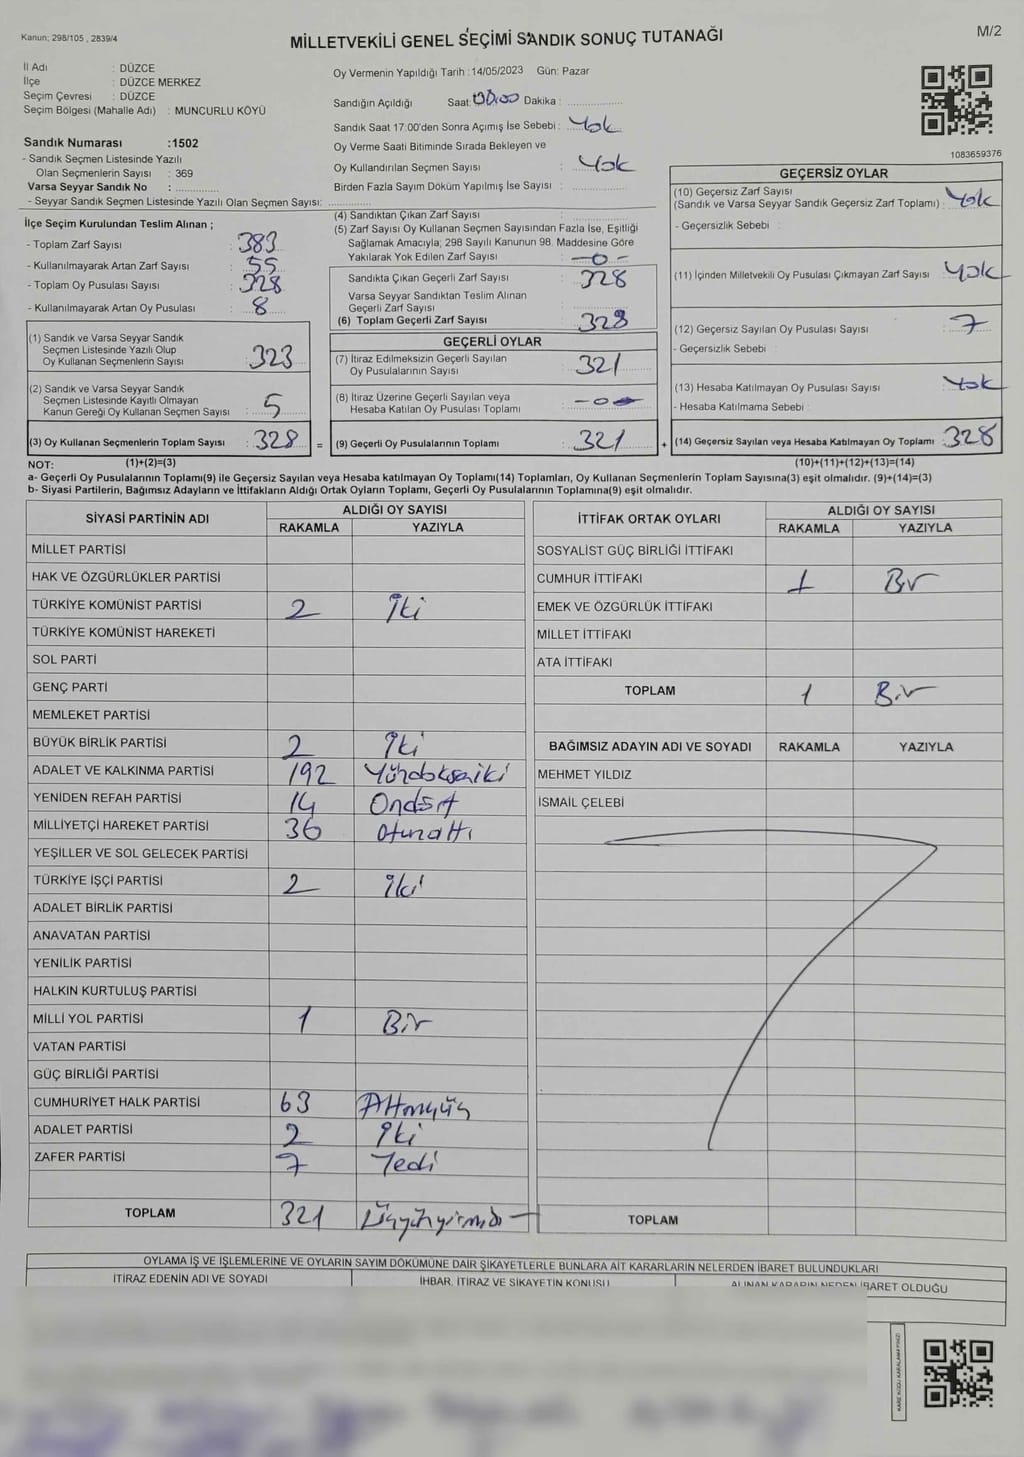 Kanun: 298/105 , 2839/4
MİLLETVEKİLİ GENEL SEÇİMİ SANDIK SONUÇ TUTANAĞI
M/2
İl Adı : DÜZCE
İlçe : DÜZCE MERKEZ
Seçim Çevresi : DÜZCE
Seçim Bölgesi (Mahalle Adı) : MUNCURLU KÖYÜ
Sandık Numarası :1502
- Sandık Seçmen Listesinde Yazılı
Olan Seçmenlerin Sayısı : 369
Varsa Seyyar Sandık No :
- Seyyar Sandık Seçmen Listesinde Yazılı Olan Seçmen Sayısı:
Oy Vermenin Yapıldığı Tarih :14/05/2023 Gün: Pazar
Sandığın Açıldığı Saat: Dakika :
Sandık Saat 17:00'den Sonra Açımış İse Sebebi : Yok
Oy Verme Saati Bitiminde Sırada Bekleyen ve
Oy Kullandırılan Seçmen Sayısı : Yok
Birden Fazla Sayım Döküm Yapılmış İse Sayısı :
1083659376
İlçe Seçim Kurulundan Teslim Alınan ;
- Toplam Zarf Sayısı : 383
- Kullanılmayarak Artan Zarf Sayısı : 55
- Toplam Oy Pusulası Sayısı : 328
- Kullanılmayarak Artan Oy Pusulası : 8
(1) Sandık ve Varsa Seyyar Sandık
Seçmen Listesinde Yazılı Olup
Oy Kullanan Seçmenlerin Sayısı : 323
(2) Sandık ve Varsa Seyyar Sandık
Seçmen Listesinde Kayıtlı Olmayan
Kanun Gereği Oy Kullanan Seçmen Sayısı : 5
(3) Oy Kullanan Seçmenlerin Toplam Sayısı : 328 =
(4) Sandıktan Çıkan Zarf Sayısı :
(5) Zarf Sayısı Oy Kullanan Seçmen Sayısından Fazla İse, Eşitliği
Sağlamak Amacıyla; 298 Sayılı Kanunun 98. Maddesine Göre
Yakılarak Yok Edilen Zarf Sayısı : - 0 -
Sandıkta Çıkan Geçerli Zarf Sayısı : 328
Varsa Seyyar Sandıktan Teslim Alınan
Geçerli Zarf Sayısı :
(6) Toplam Geçerli Zarf Sayısı : 328
GEÇERLİ OYLAR
(7) İtiraz Edilmeksizin Geçerli Sayılan
Oy Pusulalarının Sayısı : 321
(8) İtiraz Üzerine Geçerli Sayılan veya
Hesaba Katılan Oy Pusulası Toplamı : - 0 -
(9) Geçerli Oy Pusulalarının Toplamı : 321 +
GEÇERSİZ OYLAR
(10) Geçersiz Zarf Sayısı
(Sandık ve Varsa Seyyar Sandık Geçersiz Zarf Toplamı) : Yok
- Geçersizlik Sebebi :
(11) İçinden Milletvekili Oy Pusulası Çıkmayan Zarf Sayısı : Yok
(12) Geçersiz Sayılan Oy Pusulası Sayısı : 7
- Geçersizlik Sebebi :
(13) Hesaba Katılmayan Oy Pusulası Sayısı : Yok
- Hesaba Katılmama Sebebi :
(14) Geçersiz Sayılan veya Hesaba Katılmayan Oy Toplamı : 328
NOT: (1)+(2)=(3) (10)+(11)+(12)+(13)=(14)
a- Geçerli Oy Pusulalarının Toplamı(9) ile Geçersiz Sayılan veya Hesaba katılmayan Oy Toplamı(14) Toplamları, Oy Kullanan Seçmenlerin Toplam Sayısına(3) eşit olmalıdır. (9)+(14)=(3)
b- Siyasi Partilerin, Bağımsız Adayların ve İttifakların Aldığı Ortak Oyların Toplamı, Geçerli Oy Pusulalarının Toplamına(9) eşit olmalıdır.
SİYASİ PARTİNİN ADI ALDIĞI OY SAYISI
RAKAMLA YAZIYLA
MİLLET PARTİSİ
HAK VE ÖZGÜRLÜKLER PARTİSİ
TÜRKİYE KOMÜNİST PARTİSİ 2 İki
TÜRKİYE KOMÜNİST HAREKETİ
SOL PARTİ
GENÇ PARTİ
MEMLEKET PARTİSİ
BÜYÜK BİRLİK PARTİSİ 2 İki
ADALET VE KALKINMA PARTİSİ 192 Yüzdoksaniki
YENİDEN REFAH PARTİSİ 14 Ondört
MİLLİYETÇİ HAREKET PARTİSİ 36 Otuzaltı
YEŞİLLER VE SOL GELECEK PARTİSİ
TÜRKİYE İŞÇİ PARTİSİ 2 İki
ADALET BİRLİK PARTİSİ
ANAVATAN PARTİSİ
YENİLİK PARTİSİ
HALKIN KURTULUŞ PARTİSİ
MİLLİ YOL PARTİSİ 1 Bir
VATAN PARTİSİ
GÜÇ BİRLİĞİ PARTİSİ
CUMHURİYET HALK PARTİSİ 63 Altmışüç
ADALET PARTİSİ 2 İki
ZAFER PARTİSİ 7 Yedi
TOPLAM 321 Üçyüzyirmibir
İTTİFAK ORTAK OYLARI ALDIĞI OY SAYISI
RAKAMLA YAZIYLA
SOSYALİST GÜÇ BİRLİĞİ İTTİFAKI
CUMHUR İTTİFAKI 1 Bir
EMEK VE ÖZGÜRLÜK İTTİFAKI
MİLLET İTTİFAKI
ATA İTTİFAKI
TOPLAM 1 Bir
BAĞIMSIZ ADAYIN ADI VE SOYADI RAKAMLA YAZIYLA
MEHMET YILDIZ
İSMAİL ÇELEBİ
TOPLAM
OYLAMA İŞ VE İŞLEMLERİNE VE OYLARIN SAYIM DÖKÜMÜNE DAİR ŞİKAYETLERLE BUNLARA AİT KARARLARIN NELERDEN İBARET BULUNDUKLARI
İTİRAZ EDENİN ADI VE SOYADI İHBAR, İTİRAZ VE ŞİKAYETİN KONUSU ALINAN KARARIN NEDEN İBARET OLDUĞU